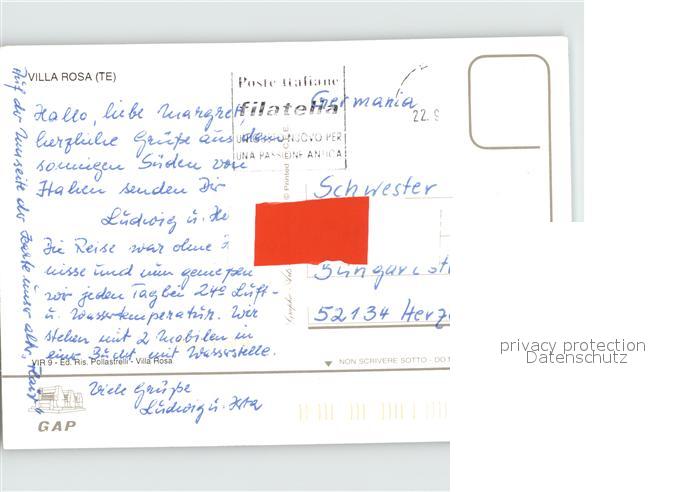 VILLA ROSA (TE)
Hallo, liebe Margret
herzliche Grüße aus dem
sonnigen Süden von
Italien senden Dir
Ludwig u.
Die Reise war ohne
nisse und nun genießen
wir jeden Tag bei 24° Luft-
u. Wassertemperatur. Wir
stehen mit 2 Mobilen in
einer Bucht mit Wasserstelle.
VIR 9 - Ed. Ris. Pollastrelli - Villa Rosa
Viele Grüße
Ludwig u.
GAP
Auf der der Karte unser alter
Poste Italiane
filatelia
NUOVO PER
UNA PASSIONE ANTICA
22.9
Germania
© Printed
Schwester
52134 Herz
NON SCRIVERE SOTTO - DO
privacy protection
Datenschutz